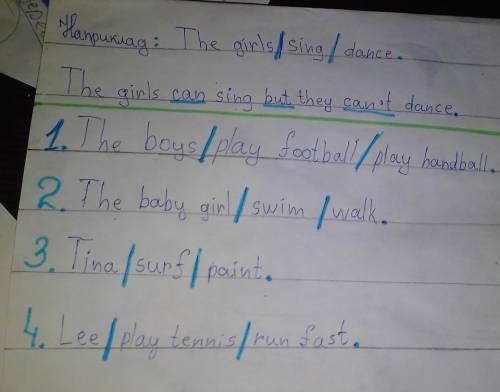 Наприклад: The girls/sing/dance.
The girls can sing but they can't dance.
1. The boys/play football/play handball.
2. The baby girl/swim/walk.
3. Tina/surf/paint.
4. Lee/play tennis/run fast.